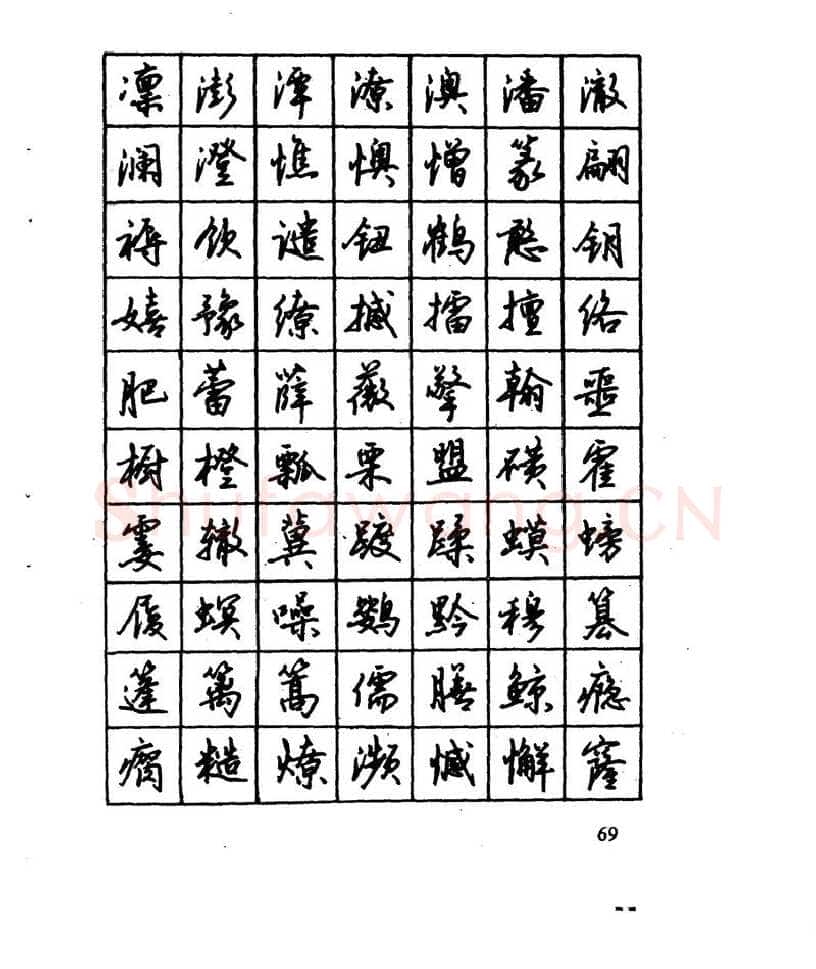 凛澎潭潦澳潘澈
澜澄憔懊憎篆翩
褥谴鹤憨
嬉豫缭撼擂擅
肥蕾薛薇擎翰噩
橱橙瓢磺霍
霎辙冀踱蹂蟆螃
螟噪鹦黔穆篡
篷篱篙儒膳鲸瘾
瘸糙燎濒憾懈窿
Shufawang.CN
69